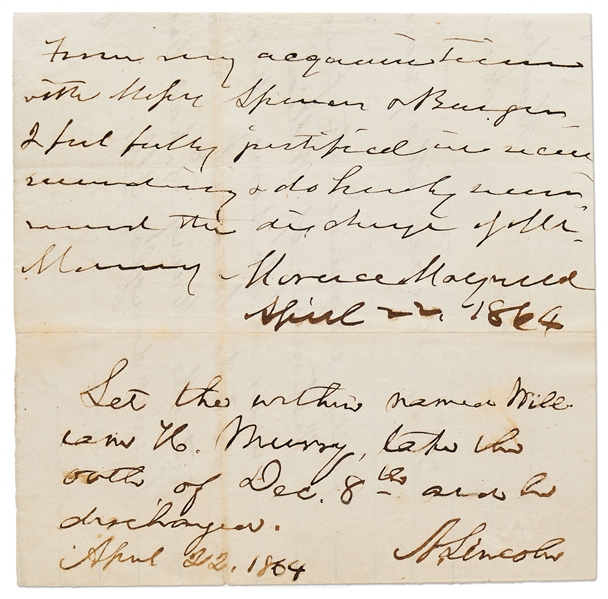 From my acquaintance
with Messrs Spencer & Burgess
I feel fully justified in recom
mending & do hereby recom
mend the discharge of Mr.
Murray Horace Maynard
April 22, 1864
Let the within named Will-
iam H. Murry, take the
oath of Dec. 8th and be
discharged.
A. Lincoln
April 22, 1864